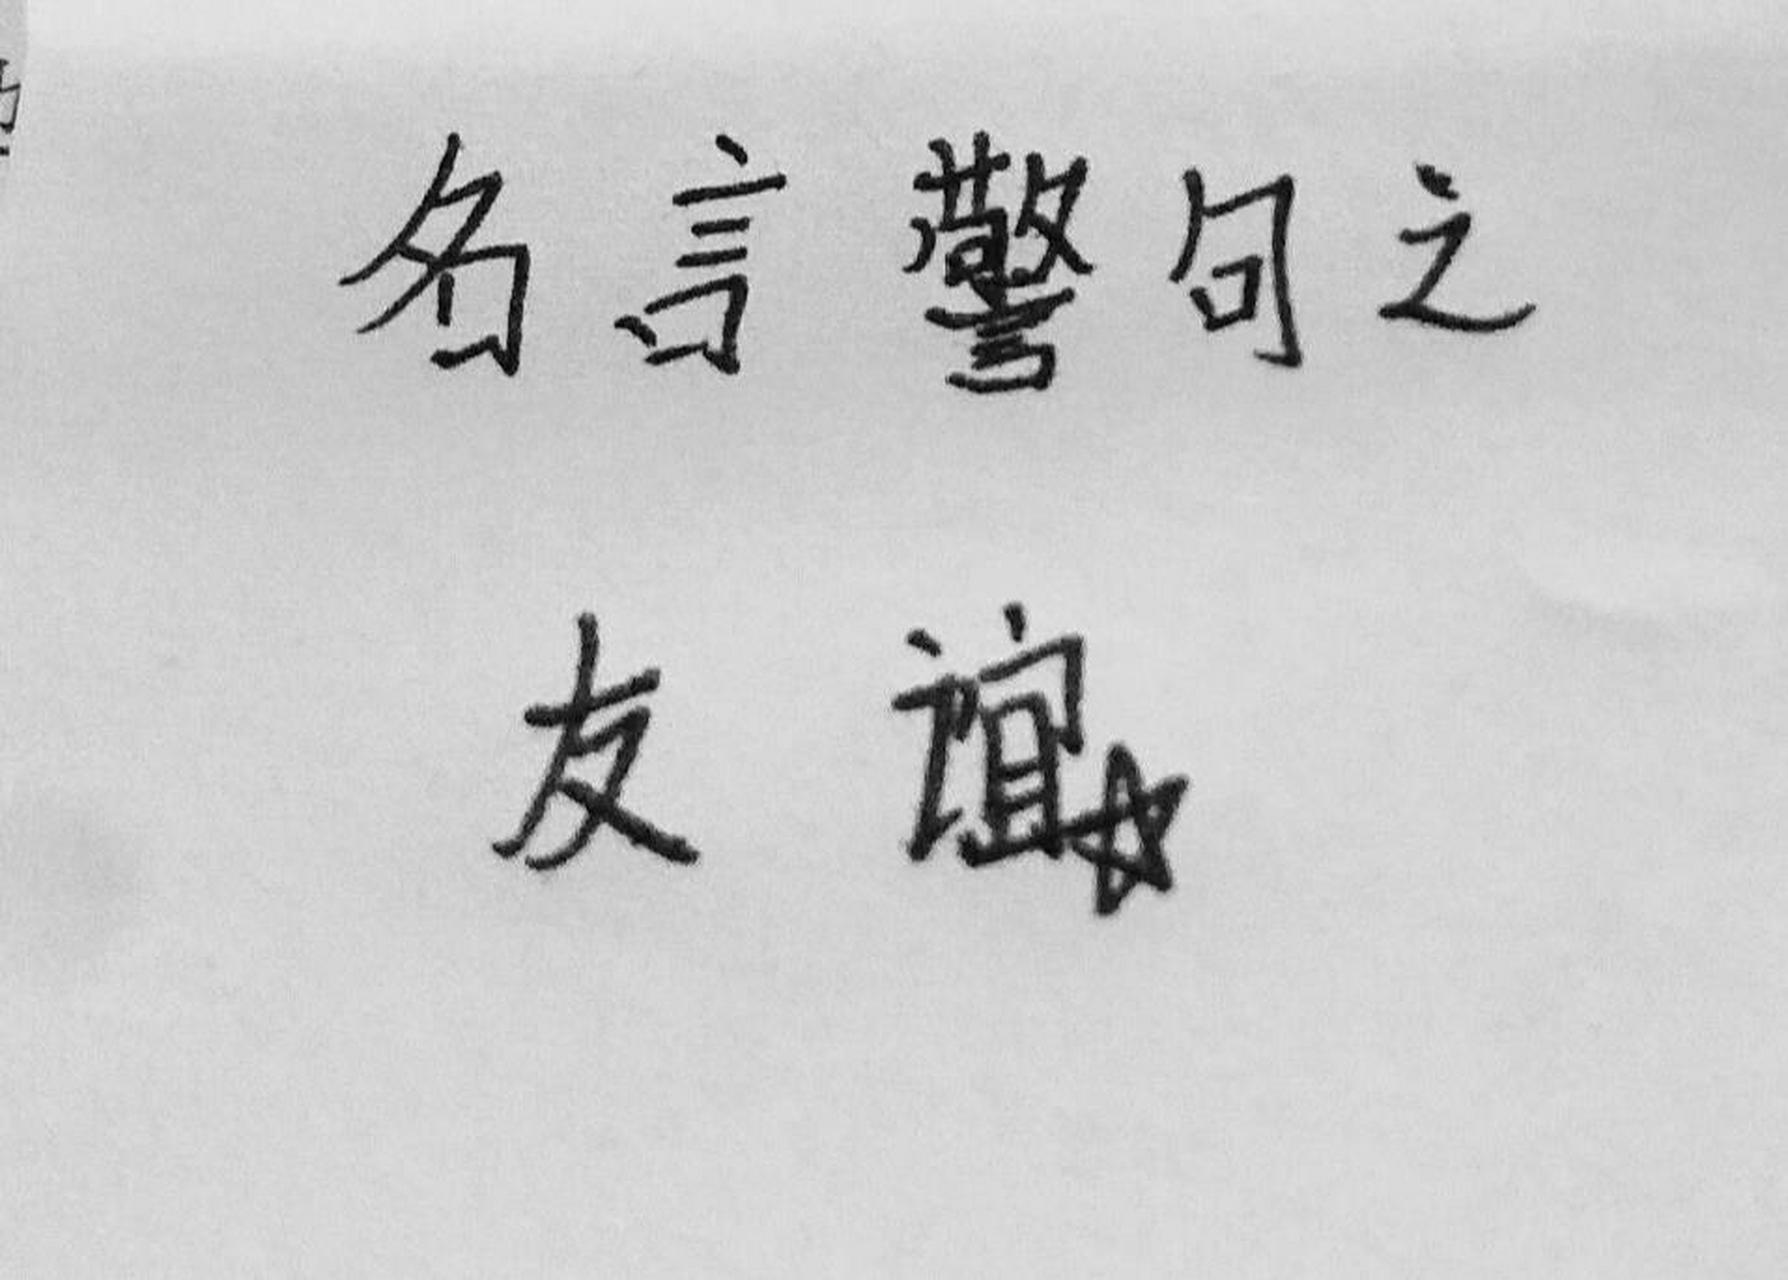 名言警句之
友谊☆